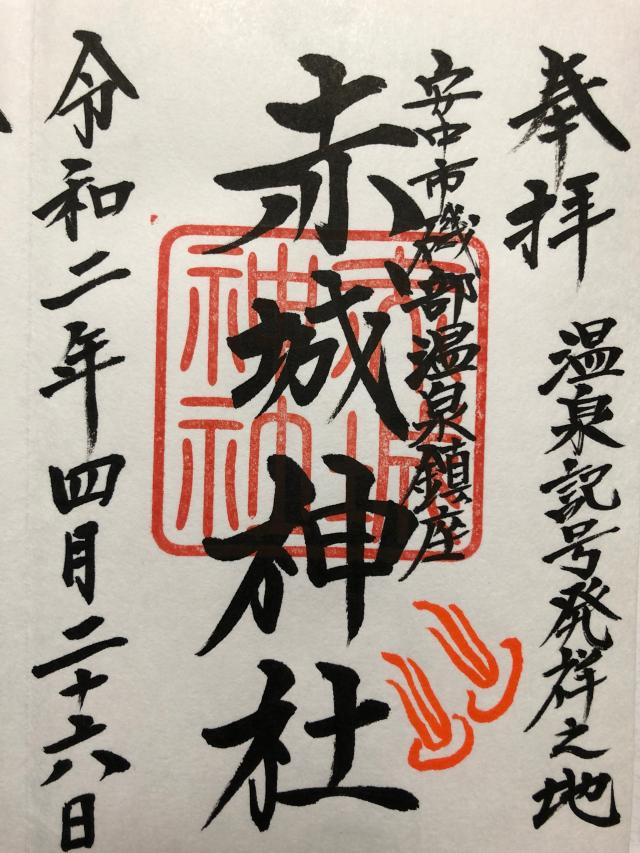 奉拝 温泉記号発祥之地
安中市磯部温泉鎮座
赤城神社
令和二年四月二十六日